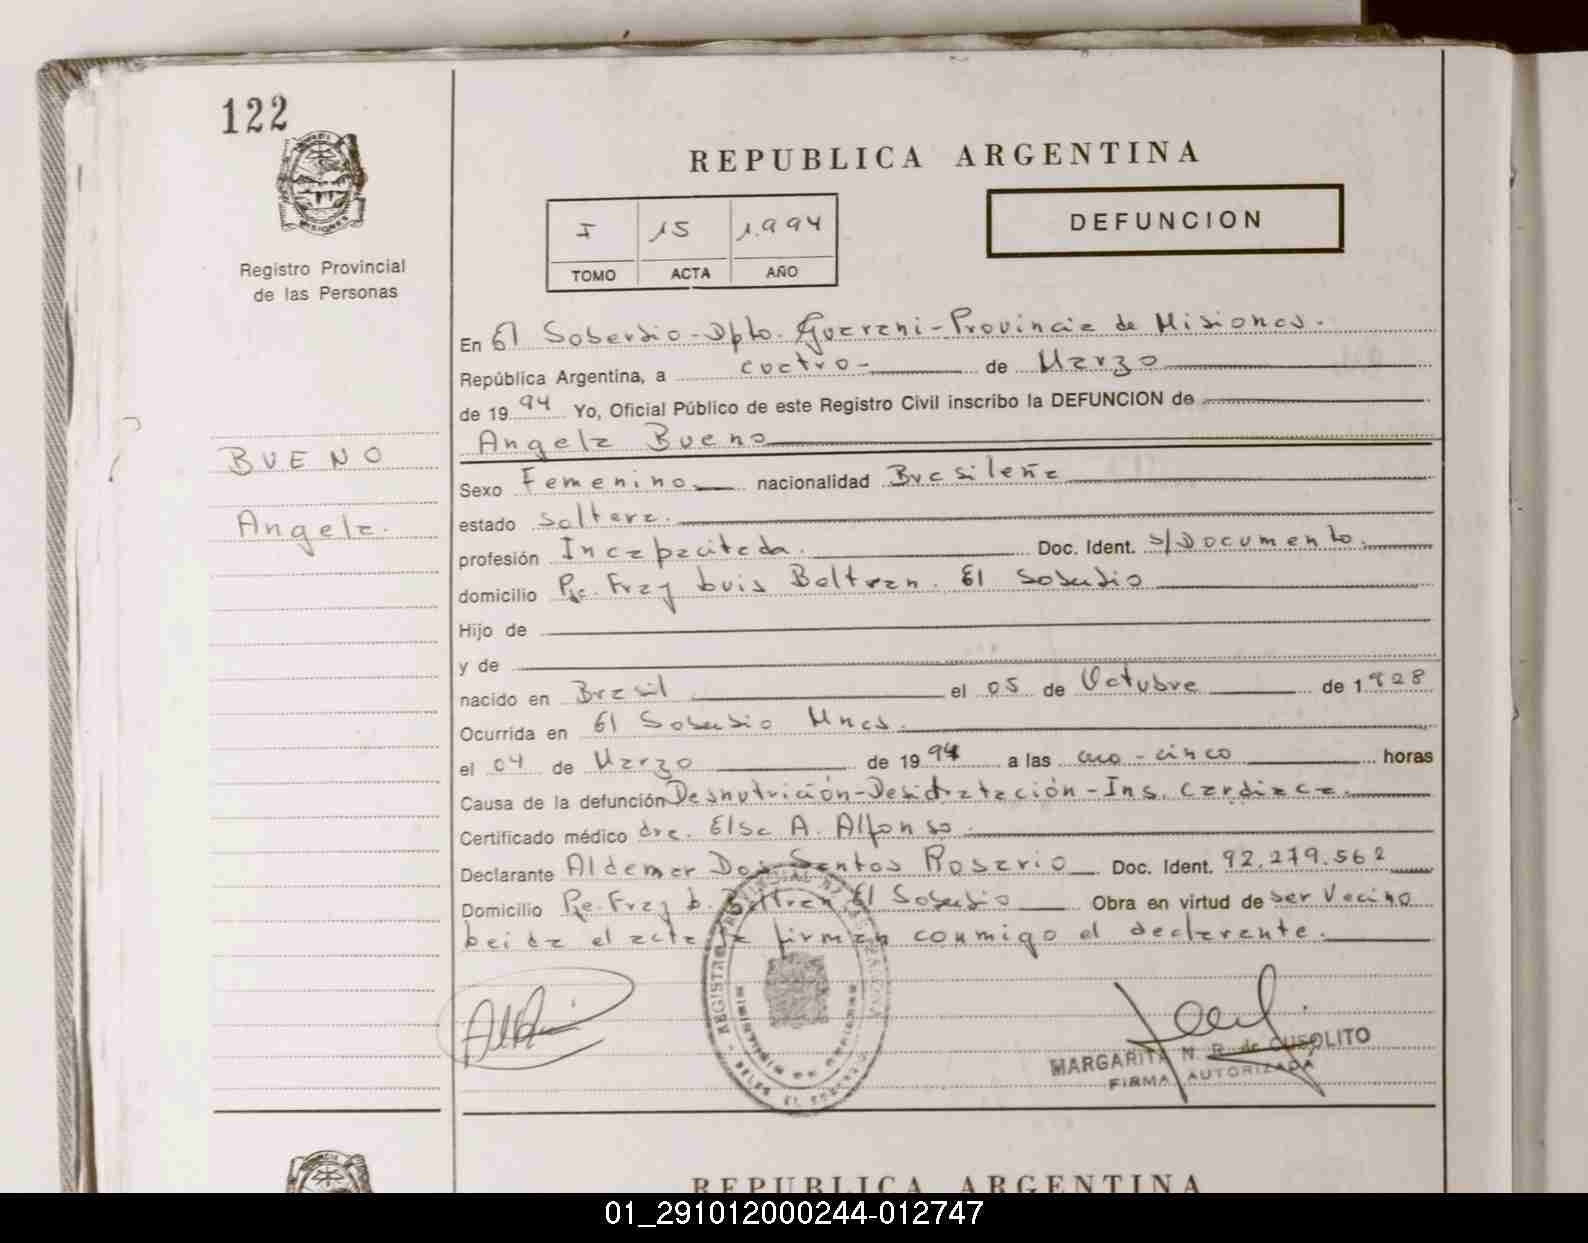 122
MISIONES
Registro Provincial
de las Personas
BUENO
Angela.
REPUBLICA ARGENTINA
I 15 1.994
TOMO ACTA AÑO
DEFUNCION
En El Soberbio-Dpto. Guarani-Provincia de Misiones.
República Argentina, a cuatro- de Marzo
de 1994 Yo, Oficial Público de este Registro Civil inscribo la DEFUNCION de
Angela Bueno
Sexo Femenino nacionalidad Brasileña
estado Soltera.
profesión Incapacitada. Doc. Ident. s/Documento.
domicilio Pje. Fray Luis Beltran. El Soberbio
Hijo de
y de
nacido en Brasil el 05 de Octubre de 1928
Ocurrida en El Soberbio Mnes.
el 04 de Marzo de 1994 a las cero-cinco horas
Causa de la defunción Desnutrición-Desidratación-Ins. Cardiaca.
Certificado médico dra. Elsa A. Alfonso.
Declarante Aldemar Dos Santos Rosario Doc. Ident. 92.279.562
Domicilio Pje. Fray L. Beltran El Soberbio Obra en virtud de ser Vecino
Leida el acta la firman conmigo el declarante.
MARGARITA N. R. de CUSOLITO
FIRMA AUTORIZADA
REPUBLICA ARGENTINA
01_291012000244-012747